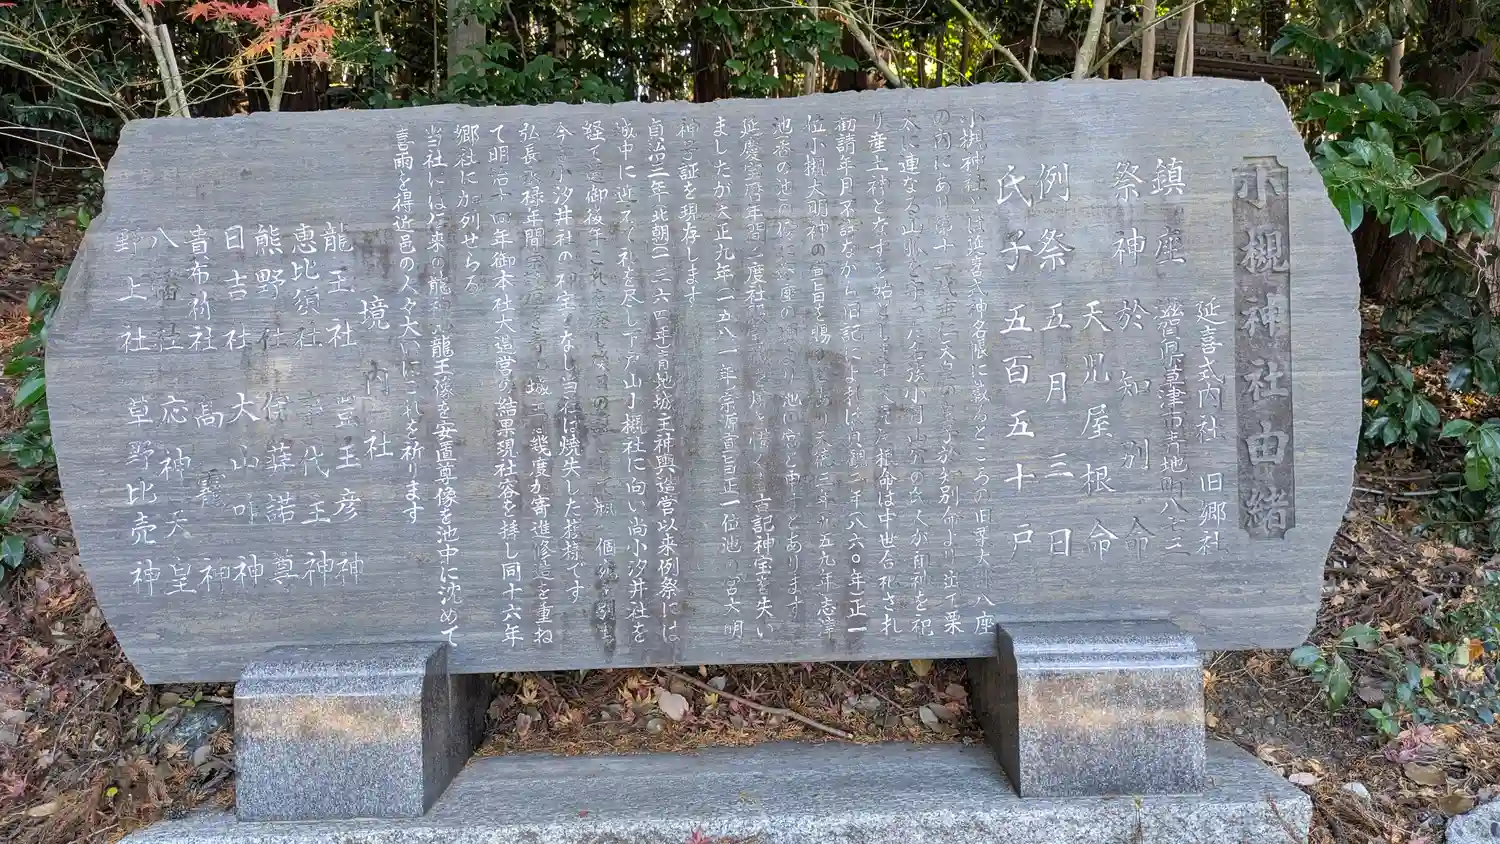 小槻神社由緒
延喜式内社 旧郷社
鎮座 滋賀県草津市青地町八七三
祭神 於知別命
天児屋根命
例祭 五月三日
氏子 五百五十戸
小槻神社は延喜式神名帳に載るところの旧栗太郡八座
の内にあり第十一代垂仁天皇の皇子於知別命より出て栗
太に連なる山脈を守った名族小月山公の氏人が自祖を祀
り産土神となすを始とします天児屋根命は中世合祀され
勧請年月不詳ながら旧記によれば貞観二年(八六〇年)正一
位小槻大明神の宣旨を賜るとあり天徳三年九五九年志津
池番の池の傍に鎮座の故により池の宮と申すとあります
延慶宝暦年間二度社殿
古記神宝を失い
ましたが大正九年一五八一年宗源宣旨正一位池の宮大明
神号証を現存します
貞治三年北朝(一三六四年)青地城主神輿造営以来例祭には
城中に迎えて礼を尽し下戸山小槻社に向い尚小汐井社を
経て還御後年これを廃し
今も小汐井社の
なし当社は焼失した模様です
弘長永禄年間
城主の幾度か寄進修造を重ね
て明治十四年御本社大造営の結果現社容を拝し同十六年
郷社に加列せらる
当社には伝来の龍神九龍王像を安置尊像を池中に沈めて
喜雨を得近邑の人々大いにこれを祈ります
境内社
龍王社 豊玉彦神
恵比須社 事代主神
熊野社 伊弉諾尊
日吉社 大山咋神
貴布祢社 高龗神
八幡社 応神天皇
野上社 草野比売神